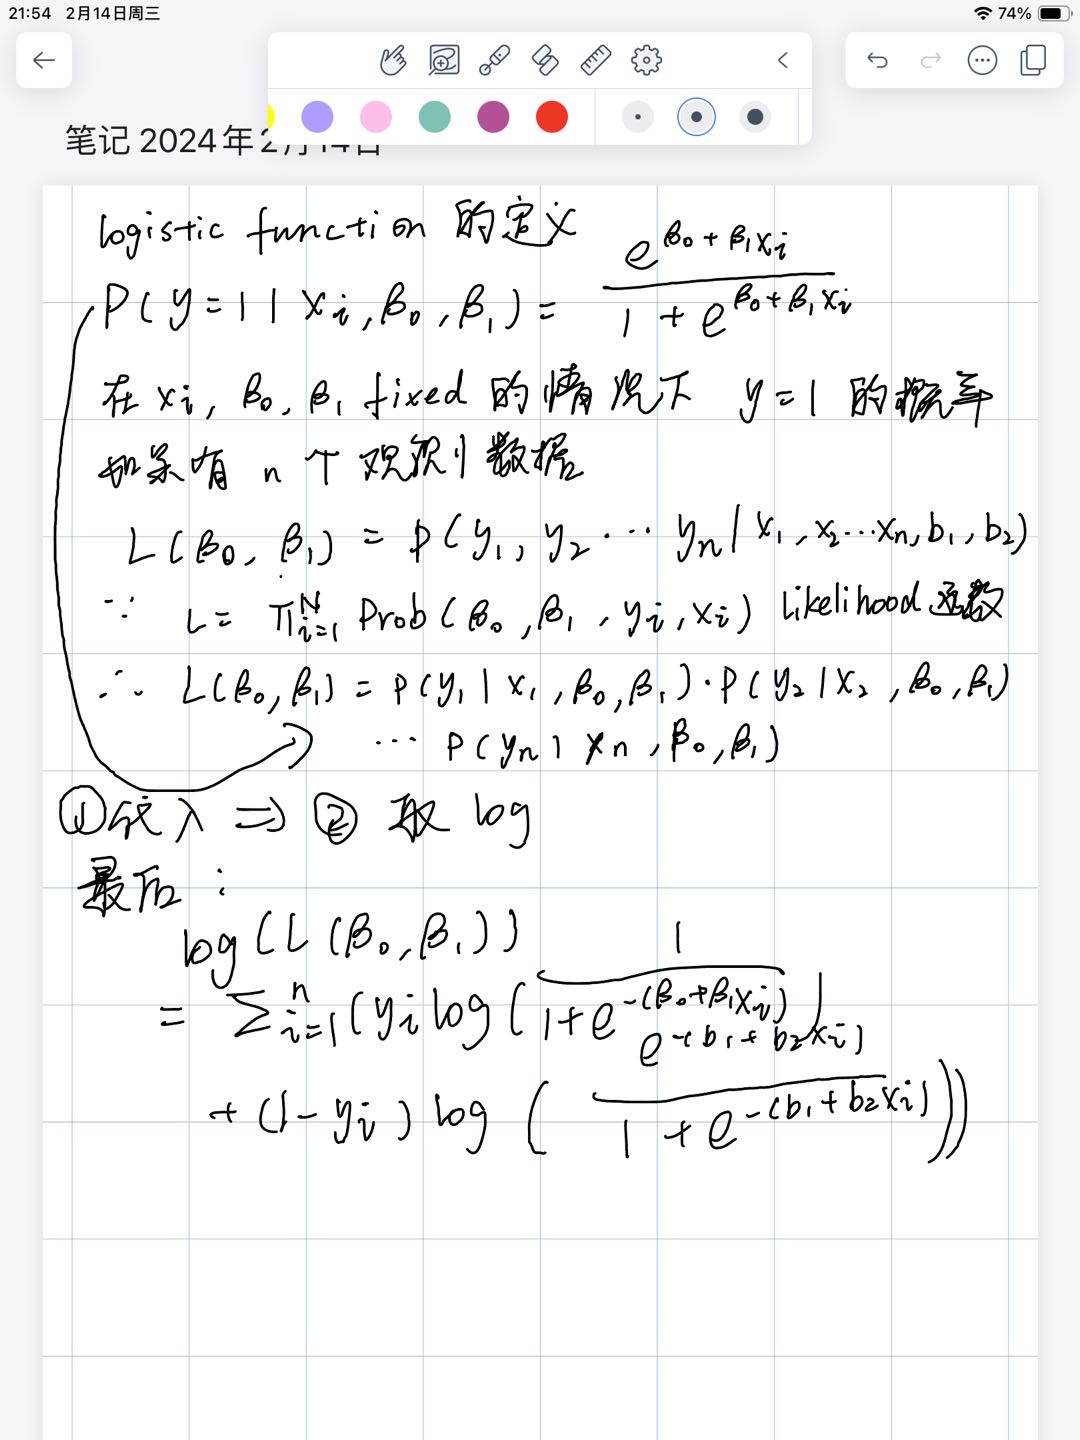 21:54 2月14日周三 74%
笔记 2024年2月14日
logistic function 的定义
P(y=1|xi,β0,β1) = e^(β0+β1xi) / (1+e^(β0+β1xi))
在 xi, β0, β1 fixed 的情况下 y=1 的概率
如果有 n 个观测数据
L(β0, β1) = P(y1, y2 ... yn | x1, x2...xn, b1, b2)
∵ L = Π_{i=1}^N Prob(β0, β1, yi, xi) Likelihood 函数
∴ L(β0,β1) = P(y1|x1,β0,β1)·P(y2|x2,β0,β1)
... P(yn|xn,β0,β1)
①代入 ⇒ ② 取 log
最后:
log(L(β0,β1))
= Σ_{i=1}^n (yi log(1 / (1+e^-(β0+β1xi)))
+ (1-yi) log(e^-(b1+b2xi) / (1+e^-(b1+b2xi))))